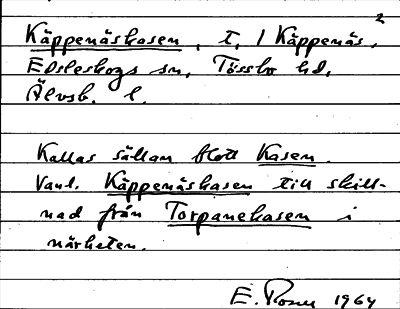 2
Käppenäskasen, t, i Käppenäs,
Edsleskogs sn, Tössbo hd,
Älvsb. l.
Kallas sällan blott Kasen.
Vanl. Käppenäskasen till skill-
nad från Torpanekasen i
närheten.
E. Rosu 1964